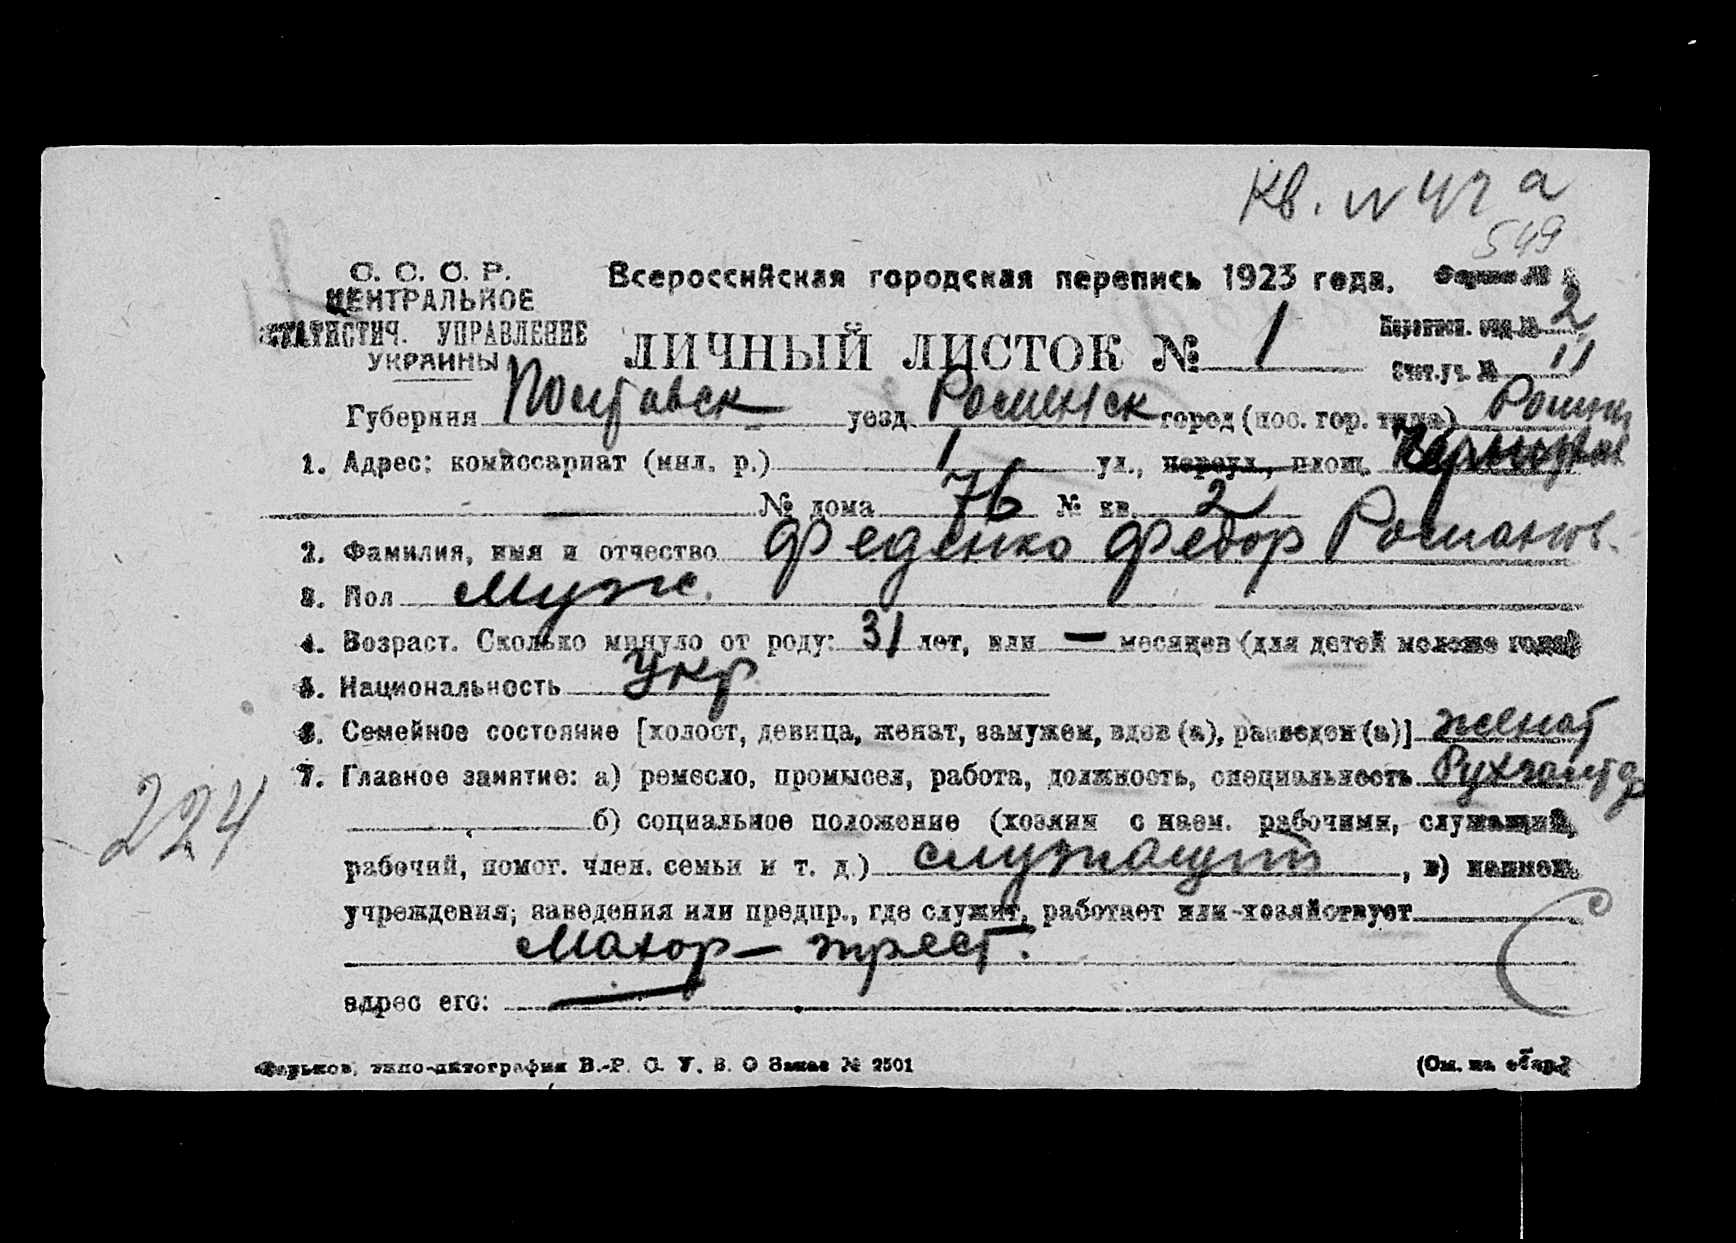 Кв. N 47 а
549
С. С. С. Р.
ЦЕНТРАЛЬНОЕ
СТАТИСТИЧ. УПРАВЛЕНИЕ
УКРАИНЫ
Всероссийская городская перепись 1923 года. Форма №
ЛИЧНЫЙ ЛИСТОК № 1
Переписн. отд. № 2
Счет. уч. № 11
Губерния Полтавск уезд Роменск город (пос. гор. типа) Ромны
1. Адрес: комиссариат (мил. р.) 1 ул., переул., площ.
№ дома 76 № кв. 2
2. Фамилия, имя и отчество Феденко Федор Романов.
3. Пол Муж.
4. Возраст. Сколько минуло от роду: 31 лет, или — месяцев (для детей моложе года)
5. Национальность Укр
6. Семейное состояние [холост, девица, женат, замужем, вдов (а), разведен (а)] женат
7. Главное занятие: а) ремесло, промысел, работа, должность, специальность
б) социальное положение (хозяин с наем. рабочими, служащий,
рабочий, помог. член. семьи и т. д.) служащий, в) наимен.
учреждения, заведения или предпр., где служит, работает или хозяйствует
Махор-трест.
адрес его: —
224
Харьков, типо-литография В.-Р. С. У. В. О Заказ № 2501
(См. на обор.)